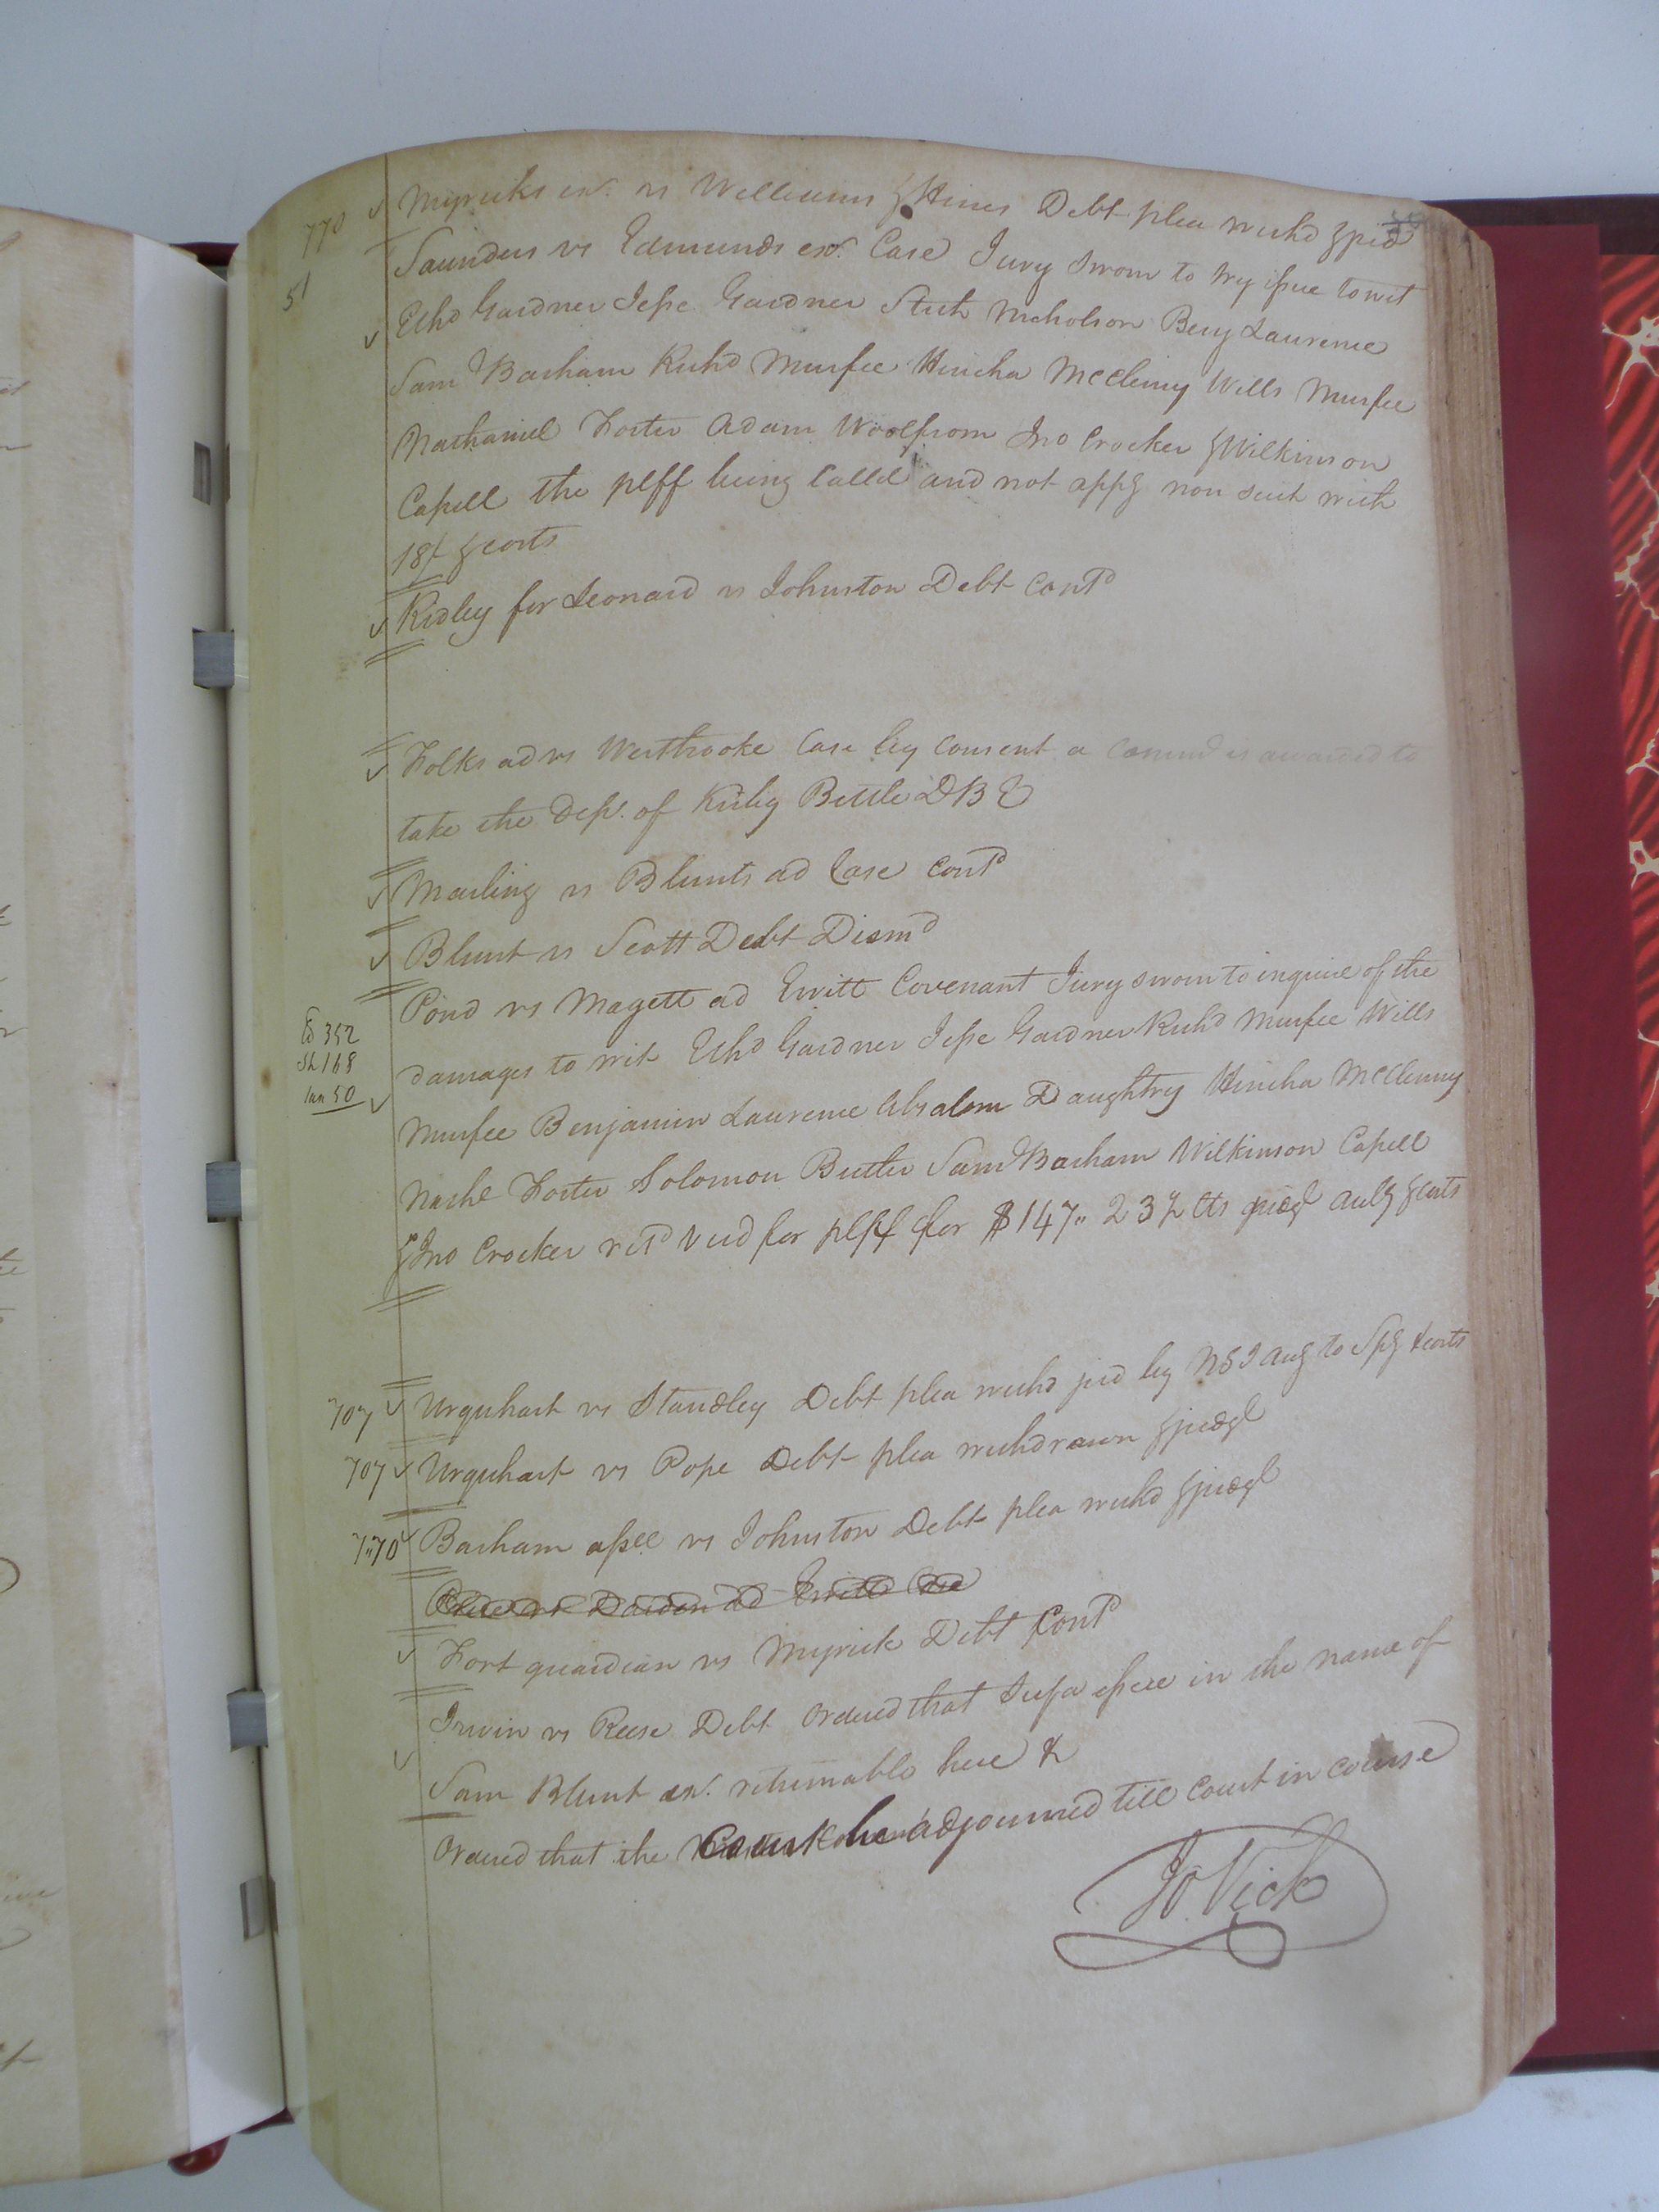 770 Myricks exr. vs Williams & Hines Debt plea withd & jud
51 Saunders vs Edmunds exr. Case Jury sworn to try issue to wit
Ethd Gardner Jesse Gardner Nicholson Benj Laurence
Sam Barham Richd Murfee Hincha McClenny Wills Murfee
Nathaniel Foster Adam Woolfrom Jno Crocker & Wilkinson
Capell the plff being Called and not appg non suit with
18/ & costs
Ridley for Leonard vs Johnston Debt Contd
Folks ad vs Westbrooke Case by Consent a Commn is awarded to
take the Dep. of Kirby Bittle DB &
Mailing vs Blunts ad Case Contd
Blunt vs Scott Debt Dismd
Pond vs Magett ad Covenant Jury sworn to inquire of the
352
Sh 168
50
damages to wit Ethd Gardner Jesse Gardner Richd Murfee Wills
Murfee Benjamin Laurence Absalom Daughtry Hincha McClenny
Nathl Foster Solomon Butler Sam Barham Wilkinson Capell
& Jno Crocker retd Verd for plff for $147,, 23½ Cts & costs
707 Urquhart vs Standley Debt plea withd jud by NSI & costs
707 Urquhart vs Pope Debt plea withdrawn & judgt
7.70 Barham assee vs Johnston Debt plea withd & judgt
Fort guardian vs Myrick Debt Contd
Irwin vs Reese Debt Ordered that issue in the name of
Sam Blunt exr. returnable here &
Ordered that the Court be adjourned till Court in course
Jo. Vick